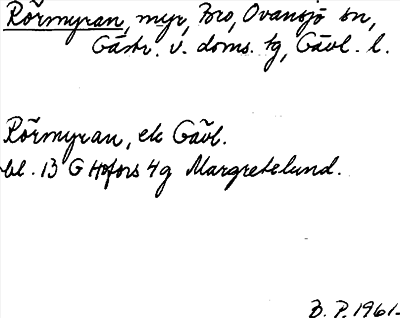 Rörmyran, myr, Bro, Ovansjö sn,
Gästr. v. doms. tg, Gävl. l.
Rörmyran, ek Gävl.
bl. 13 G Hofors 4g Margretelund.
B. P. 1961